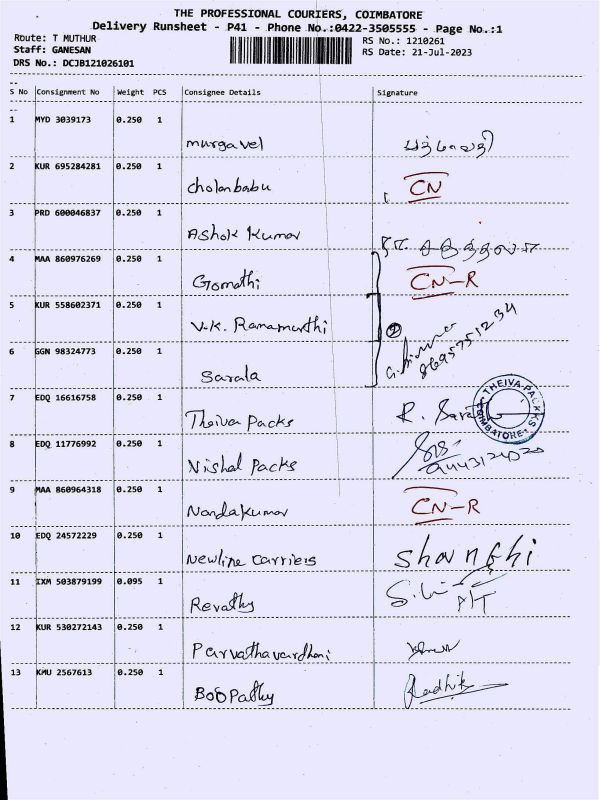 THE PROFESSIONAL COURIERS, COIMBATORE
Delivery Runsheet - P41 - Phone No.:0422-3505555 - Page No.:1
Route: T MUTHUR
RS No.: 1210261
Staff: GANESAN
RS Date: 21-Jul-2023
DRS No.: DCJB121026101
S No Consignment No Weight PCS Consignee Details Signature
1 MYD 3039173 0.250 1
murgavel
2 KUR 695284281 0.250 1
cholanbabu CN
3 PRD 600046837 0.250 1
Ashok Kumar
4 MAA 860976269 0.250 1
Gomathi CN-R
5 KUR 558602371 0.250 1
V.K. Ramamurthi
6 GGN 98324773 0.250 1
Sarala 8695751234
7 EDQ 16616758 0.250 1
Theiva Packs R.
THEIVA PACKKS
COIMBATORE
8 EDQ 11776992 0.250 1
Vishal Packs
9 MAA 860964318 0.250 1
Nandakumar CN-R
10 EDQ 24572229 0.250 1
Newline Carriers
11 IXM 503879199 0.095 1
Revathy
12 KUR 530272143 0.250 1
Parvathavardhani
13 KMU 2567613 0.250 1
Boopathy Radhika